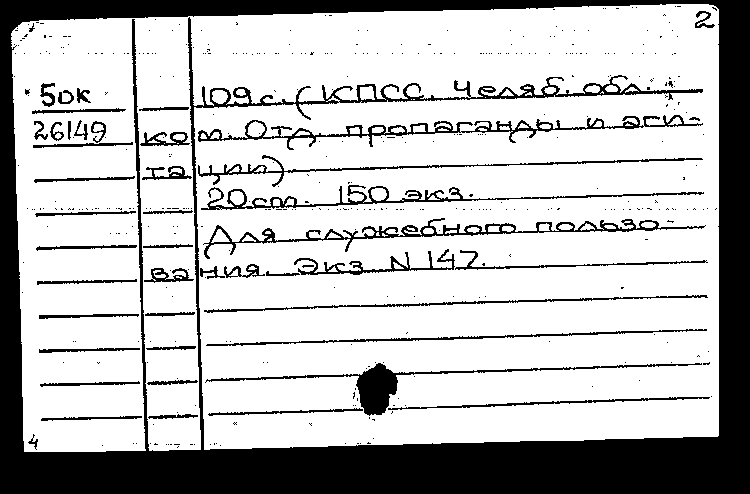 2
5ок 109 с. (КПСС. Челяб. обл.
26149 ком. Отд. пропаганды и аги-
тации)
20 см. 150 экз.
Для служебного пользо-
вания. Экз N 147.
4